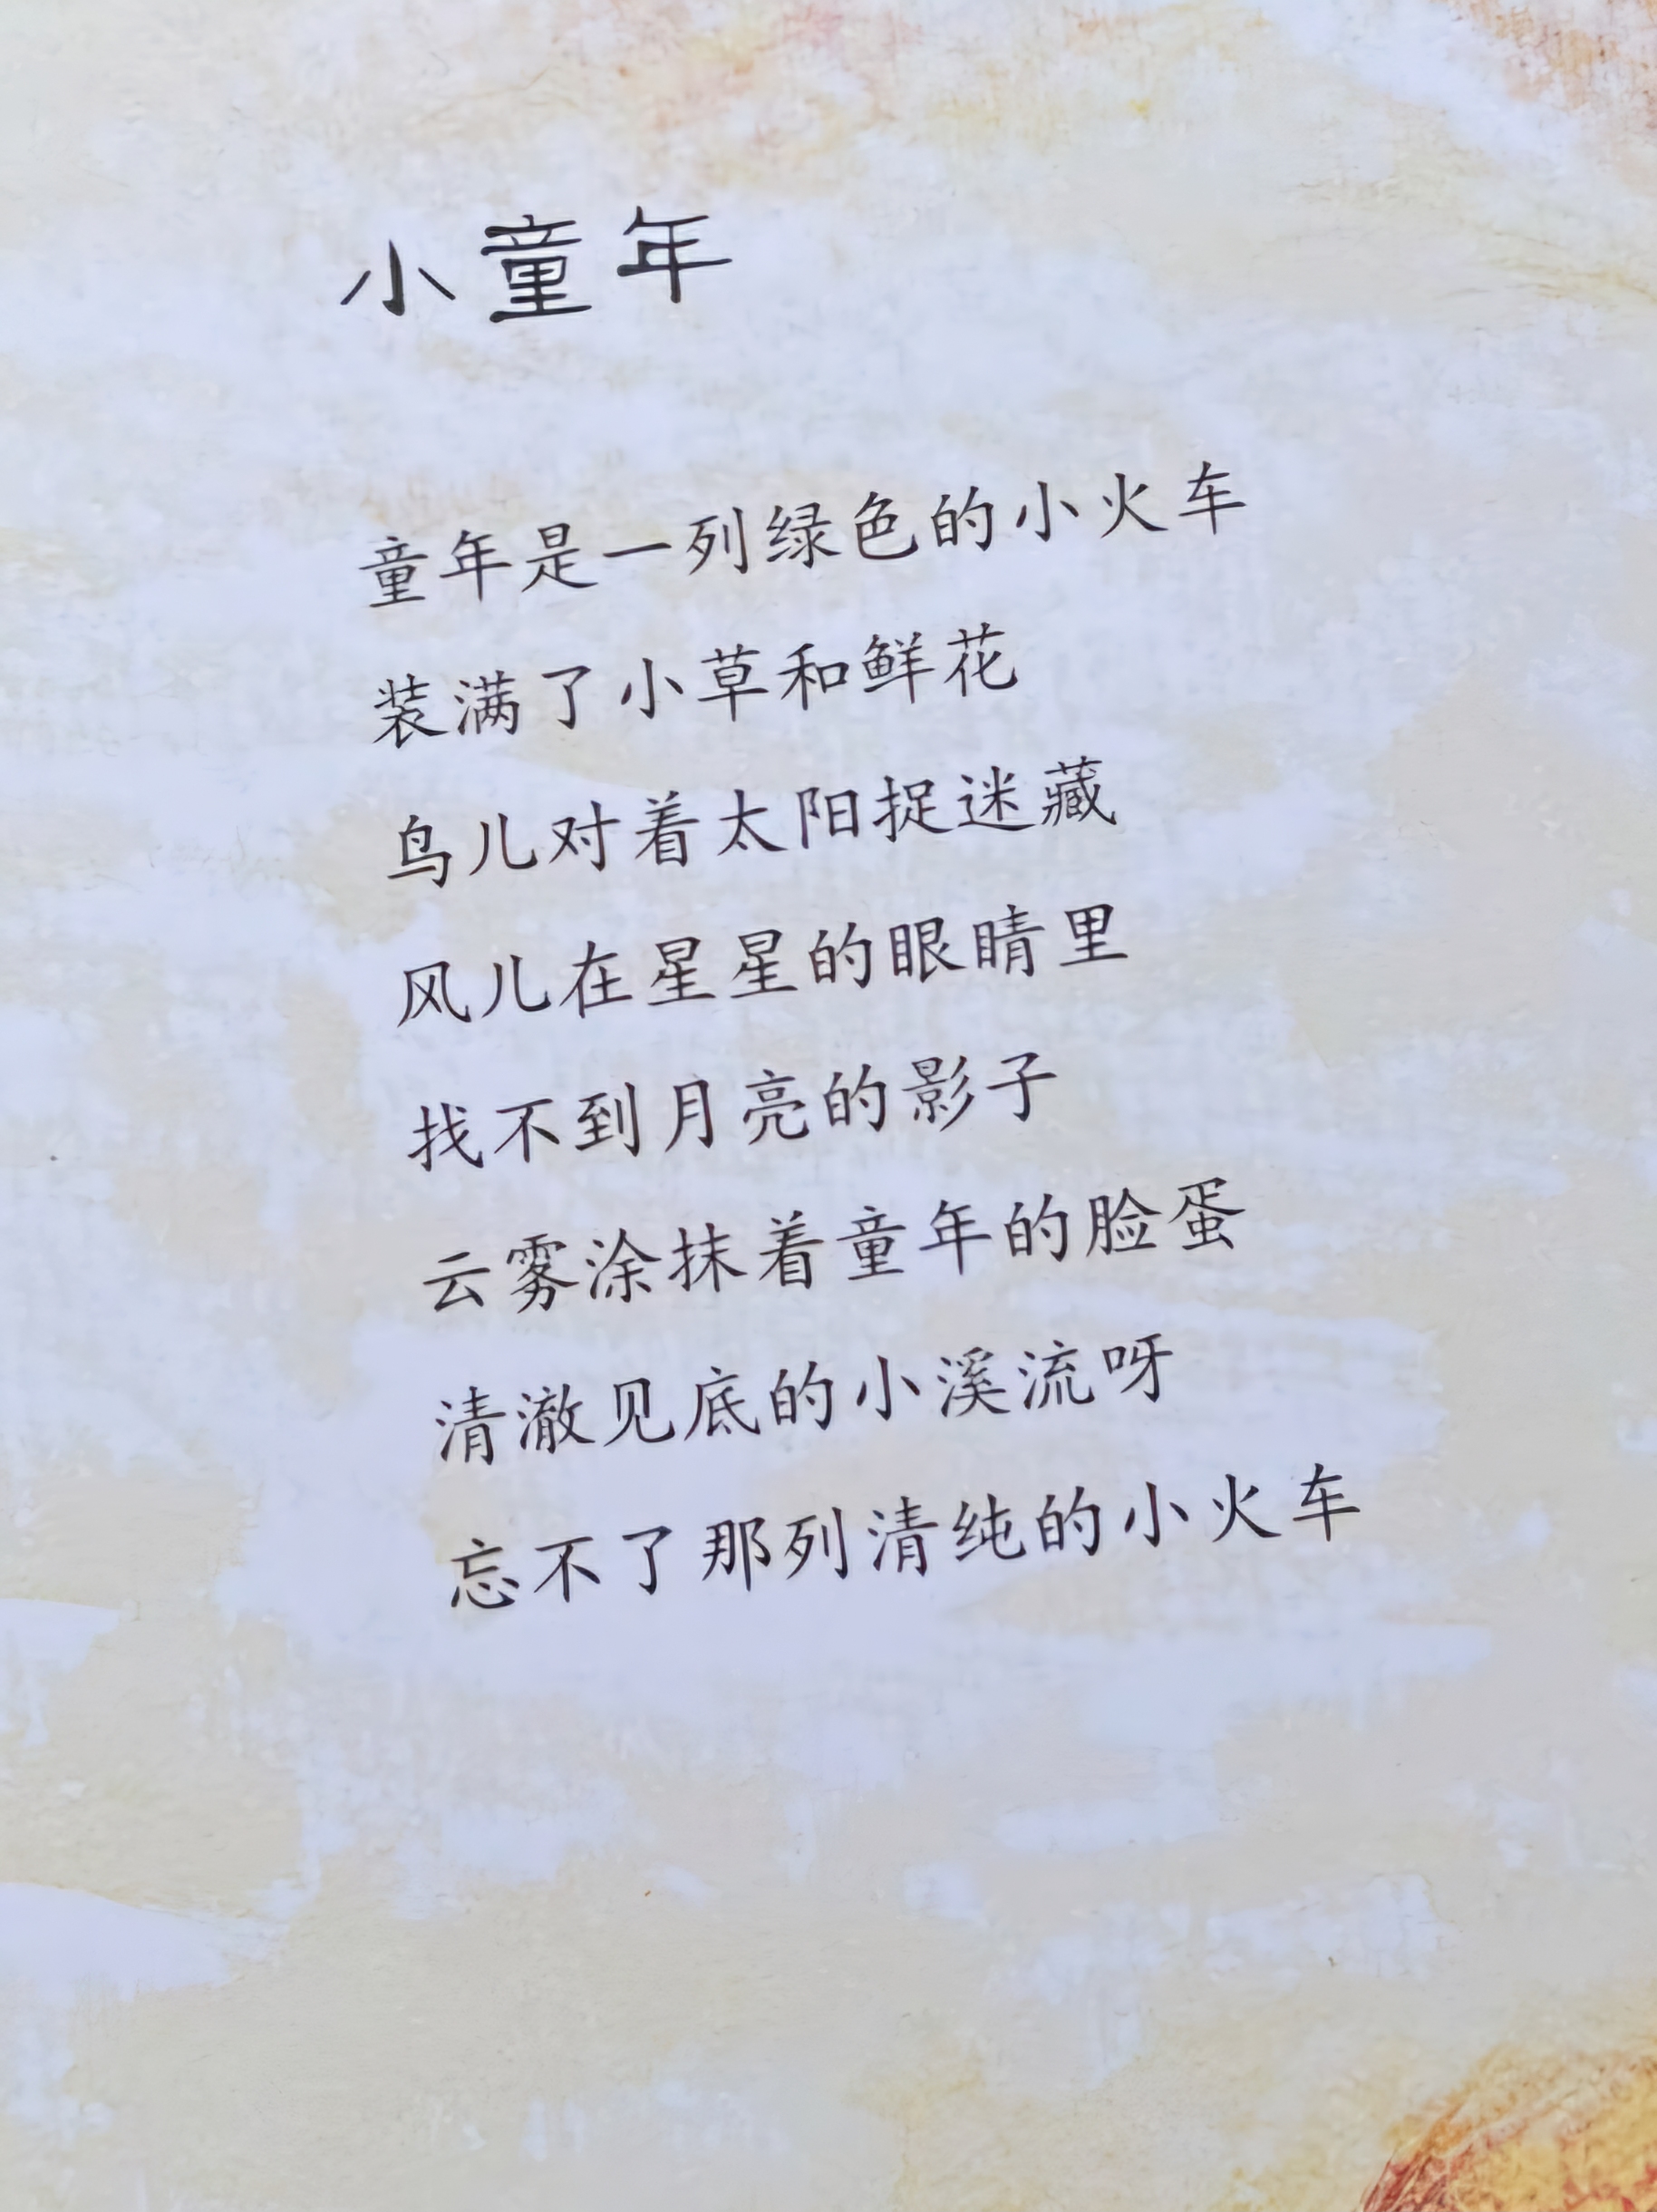 小童年
童年是一列绿色的小火车
装满了小草和鲜花
鸟儿对着太阳捉迷藏
风儿在星星的眼睛里
找不到月亮的影子
云雾涂抹着童年的脸蛋
清澈见底的小溪流呀
忘不了那列清纯的小火车